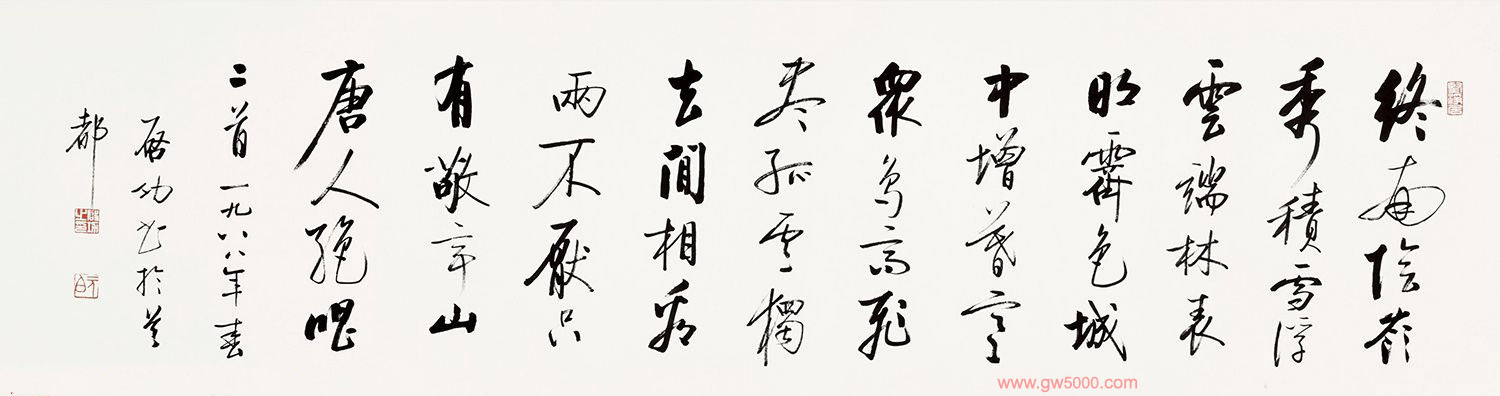 終南陰嶺
秀積雪浮
雲端林表
明霽色城
中增暮寒
眾鳥高飛
盡孤雲獨
去閒相看
兩不厭只
有敬亭山
唐人絕唱
二首一九八八年春
啟功書於首
都
www.gw5000.com